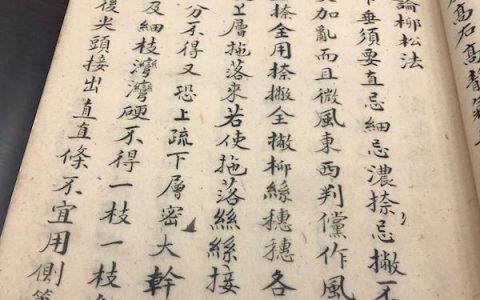 高石高靜氣
論柳松法
垂須要直忌細忌濃捺忌撇一
加亂而且微風東西判儻作風
捺全用捺撇全撇柳絲穗穗各
上層拖落來若使拖落絲絲接
分不得又恐上疏下層密大幹
及細枝灣灣硬不得一枝一枝
後尖頭接出直直條不宜用側